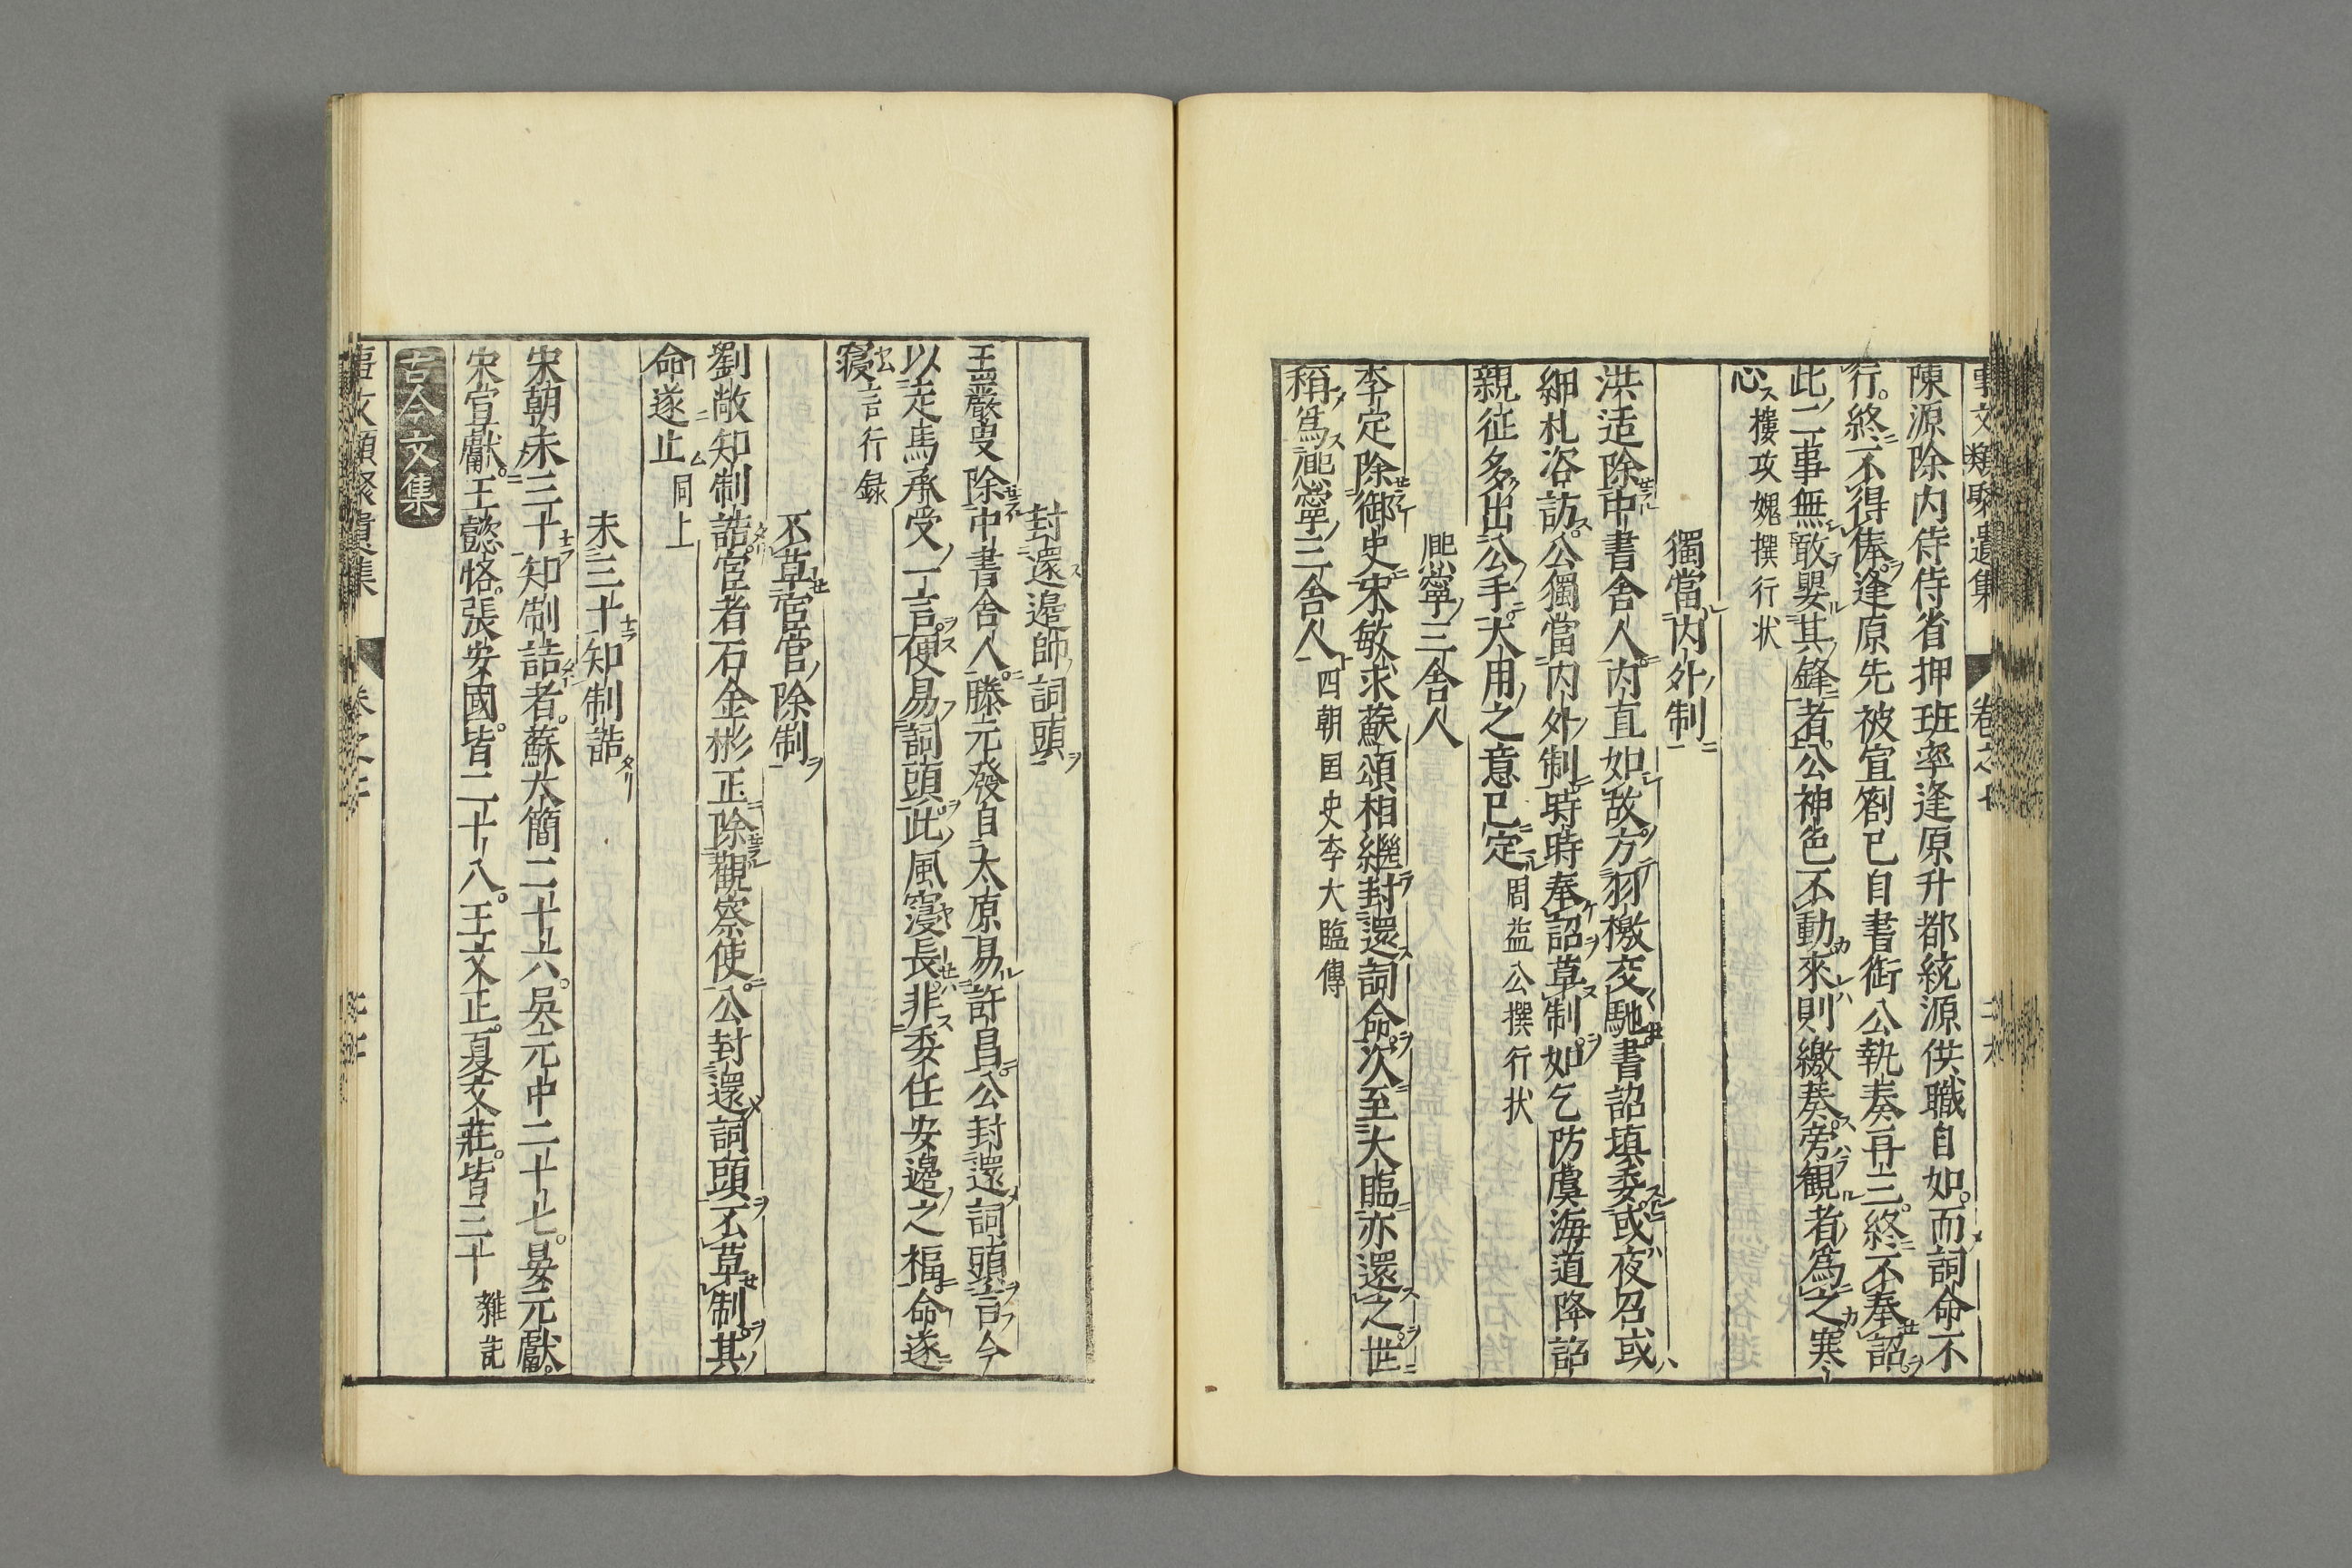 事文類聚遺集　卷之七
陳源除内侍侍省押班率逢原升都統源供職自如。而詞命不
行。終不得俸。逢原先被宣劄已自書銜公執奏再三。終不奉詔。
此二事無敢嬰其鋒者。公神色不動來則繳奏。旁觀者爲之寒
心　樓攻媿撰行状
獨當内外制
洪适除中書舍人。内直如故方羽檄交馳。書詔填委。或夜召或
細札咨訪。公獨當内外制。時時奉詔草制。如乞防虞海道降詔
親征多出公手。大用之意已定　周益公撰行状
熈寧三舍人
李定除御史宋敏求蘇頌相繼封還詞命。次至大臨亦還之。世
稱爲熈寧三舍人　四朝国史李大臨傳
封還邉帥詞頭
王巖叟除中書舍人。滕元發自太原易許昌。公封還詞頭。言今
以走馬承受一言。便易詞頭。此風寖長。非委任安邉之福。命遂
寝　言行録
不草宦官除制
劉敞知制誥。宦者石全彬正除觀察使。公封還詞頭不草制。其
命遂止　同上
未三十知制誥
宋朝未三十知制誥者。蘇太簡二十六。吳元中二十七。晏元獻。
宋宣獻。王懿恪。張安國。皆二十八。王文正。夏文莊。皆三十　雜記
古今文集
事文類聚遺集